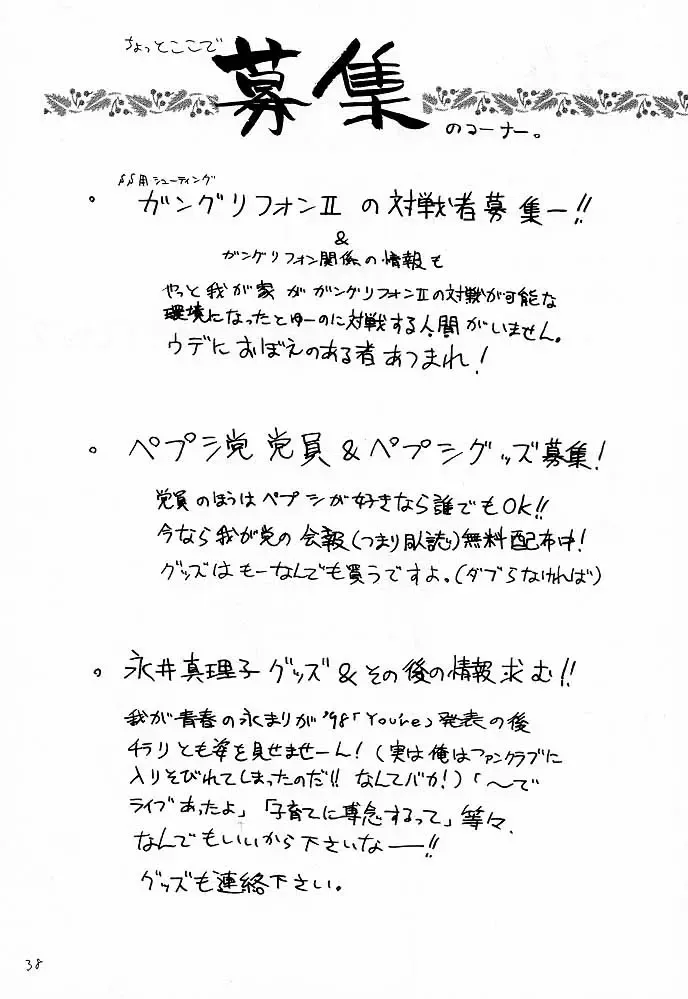 ちょっとここで
募集
のコーナー。
SS用シューティング
。ガングリフォンⅡ の対戦者募集ー!!
&
ガングリフォン関係の情報も
やっと我が家がガングリフォンⅡの対戦が可能な
環境になったとゆーのに対戦する人間がいません。
ウデにおぼえのある者あつまれ!
。ペプシ党 党員&ペプシグッズ募集!
党員のほうはペプシが好きなら誰でもOK!!
今なら我が党の会報(つまり同人誌)無料配布中!
グッズはもーなんでも買うですよ。(ダブらなければ)
。永井真理子グッズ&その後の情報求む!!
我が青春の永まりが'98「You're」発表の後
チラリとも姿を見せませーん!(実は俺はファンクラブに
入りそびれてしまったのだ!! なんてバカ!)「〜で
ライブあったよ」「子育てに専念するって」等々、
なんでもいいから下さいなー!!
グッズも連絡下さい。
38